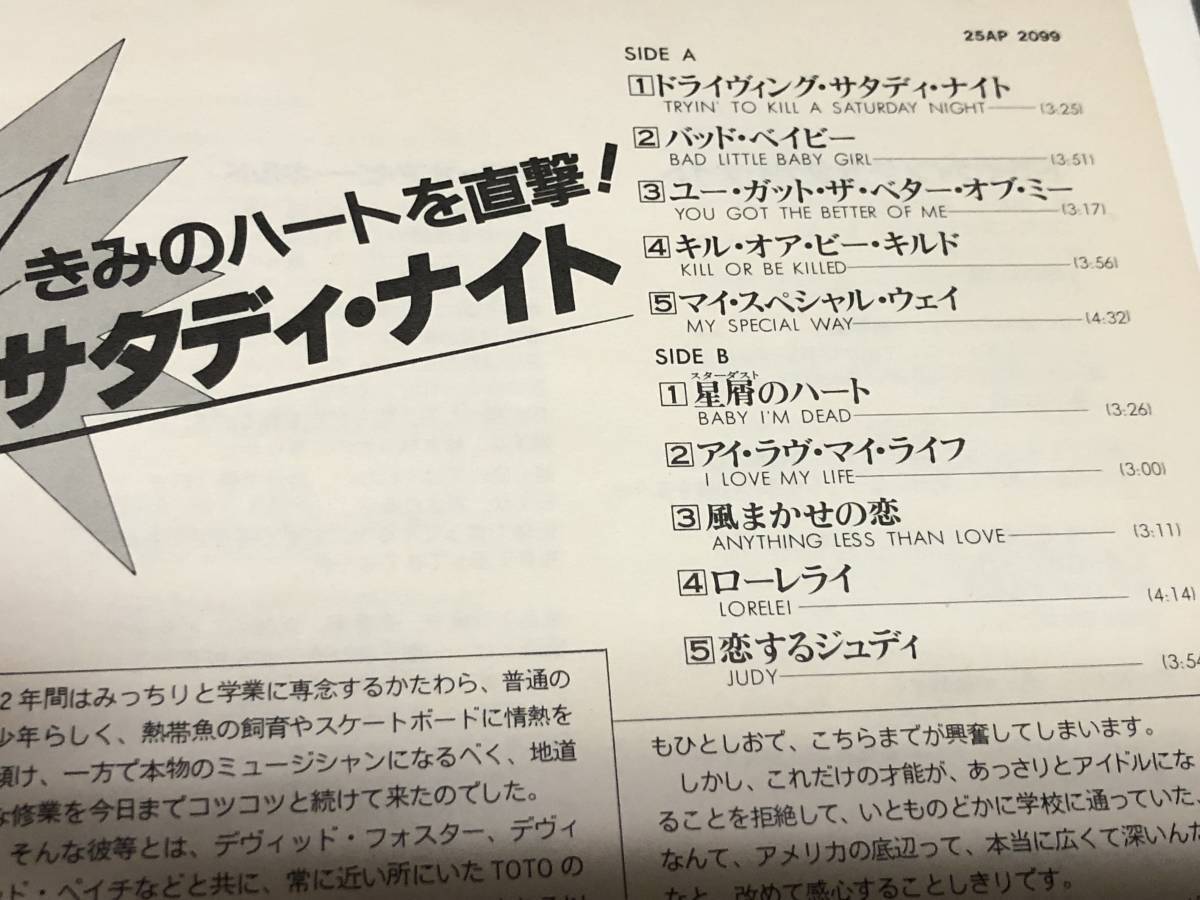 25AP 2099
きみのハートを直撃!
サタディ・ナイト
SIDE A
1 ドライヴィング・サタディ・ナイト
TRYIN' TO KILL A SATURDAY NIGHT (3:25)
2 バッド・ベイビー
BAD LITTLE BABY GIRL (3:51)
3 ユー・ガット・ザ・ベター・オブ・ミー
YOU GOT THE BETTER OF ME (3:17)
4 キル・オア・ビー・キルド
KILL OR BE KILLED (3:56)
5 マイ・スペシャル・ウェイ
MY SPECIAL WAY (4:32)
SIDE B
スターダスト
1 星屑のハート
BABY I'M DEAD (3:26)
2 アイ・ラヴ・マイ・ライフ
I LOVE MY LIFE (3:00)
3 風まかせの恋
ANYTHING LESS THAN LOVE (3:11)
4 ローレライ
LORELEI (4:14)
5 恋するジュディ
JUDY (3:54
2年間はみっちりと学業に専念するかたわら、普通の
少年らしく、熱帯魚の飼育やスケートボードに情熱を
傾け、一方で本物のミュージシャンになるべく、地道
な修業を今日までコツコツと続けて来たのでした。
そんな彼等とは、デヴィッド・フォスター、デヴィ
ッド・ペイチなどと共に、常に近い所にいたTOTOの
もひとしおで、こちらまでが興奮してしまいます。
しかし、これだけの才能が、あっさりとアイドルにな
ることを拒絶して、いとものどかに学校に通っていた、
なんて、アメリカの底辺って、本当に広くて深いんだ
なと、改めて感心することしきりです。